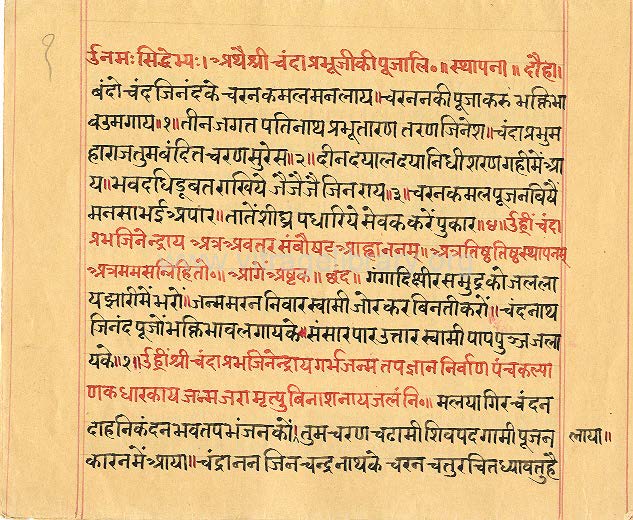 १
र्उनमः सिद्धेभ्यः। अथ श्री चंदाप्रभूजीकी पूजा लि॰॥ स्थापना॥ दौहा।
बंदो चंद जिनंदके चरन कमल मन लाय॥ चरननकी पूजा करु भक्तिभा
व उमगाय॥१॥ तीन जगत पतिनाथ प्रभू तारण तरण जिनेश॥ चंदाप्रभु म
हाराज तुम वंदित चरण सुरेस॥२॥ दीनदयाल दयानिधी शरण गही में आ
य॥ भवदधि डूबत राखिये जै जै जै जिनराय॥३॥ चरन कमल पूजन विषें
मनसा भई अपार॥ तातें शीघ्र पधारिये सेवक करें पुकार॥४॥ र्उह्रीं चंदा
प्रभजिनेन्द्राय अत्र अवतर संबौषट आह्वाननम्॥ अत्र तिष्ठ तिष्ठ स्थापनम्
अत्र मम सन्निहितो॰॥ आगे अष्टक॥ छंद॥ गंगादि क्षीर समुद्र को जल ला
य झारी में भरों॥ जन्म मरन निवार स्वामी जोर कर बिनती करों॥ चंदनाथ
जिनंद पूजों भक्तिभाव लगायके॥ संसार पार उत्तार स्वामी पाप पुञ्ज जला
यके॥१॥ र्उह्रीं श्री चंदाप्रभजिनेन्द्राय गर्भ जन्म तप ज्ञान निर्वाण पंचकल्या
णक धारकाय जन्म जरा मृत्यु बिनाशनाय जलं नि॰॥ मलयागिर चंदन
दाह निकंदन भवतप भंजन कों॥ तुम चरण चढामी शिवपद गामी पूजन लाया॥
कारन में आया॥ चंद्रानन जिन चन्द्रनाथ के चरन चतुर चित ध्यावतु है